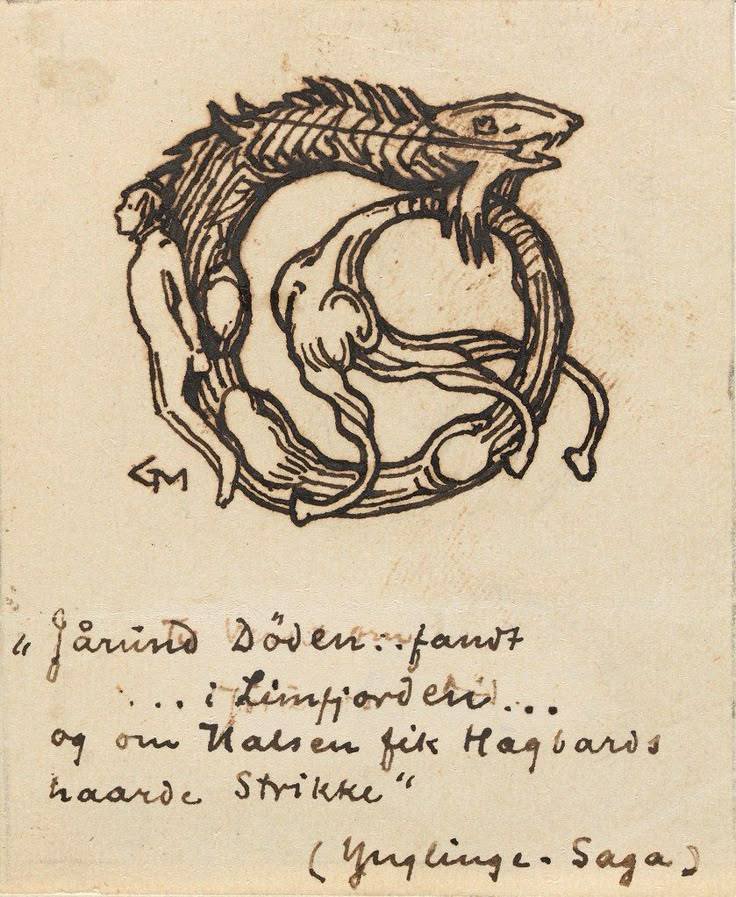 GM
„ Jårund Döden .. fandt
... i Limfjorden ...
og om Halsen fik Hagbards
haarde Strikke“
(Ynglinge - Saga)